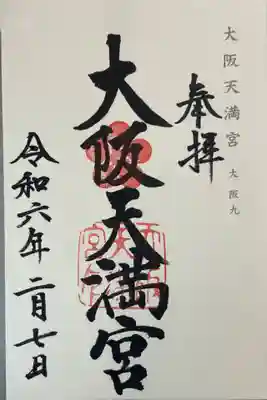 大阪天満宮 大阪九
奉拝
大阪天満宮
令和六年二月七日